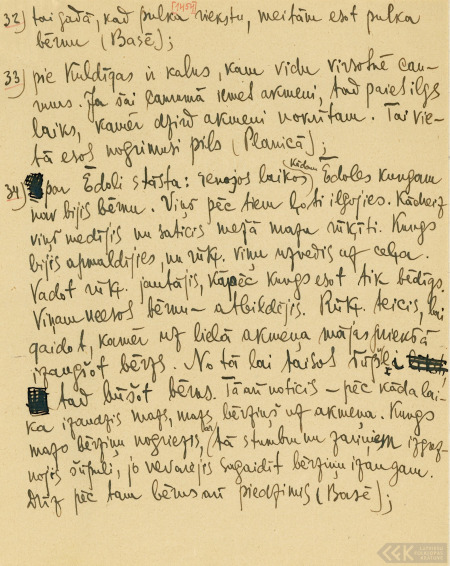 [1437]
32) tai gadā, kad pulka riekstu, meitām esot pulka
bērnu (Basē);
33) pie Kuldīgas ir kalns, kam vidū virsotnē cau-
rums. Ja šai caurumā iemet akmeni, tad paiet ilgs
laiks, kamēr dzird akmeni nokrītam. Tai vie-
tā esot nogrimusi pils (Planicā);
34) par Ēdoli stāsta: senajos laikos Ēdoles kungam
Kādam
nav bijis bērnu. Viņš pēc tiem ļoti ilgojies. Kādreiz
viņš medījis un saticis mežā mazu rūķīti. Kungs
bijis apmaldījies, un rūķ. viņu uzvedis uz ceļa.
Vadot rūķ. jautājis, kāpēc kungs esot tik bēdīgs.
Viņam neesot bērnu – atbildējis. Rūķ. teicis, lai
gaidot, kamēr uz lielā akmeņa mājas priekšā
izaugšot bērzs. No tā lai taisot šūpuli
tad būšot bērns. Tā arī noticis – pēc kāda lai-
ka izaudzis mazs, mazs bērziņš uz akmeņa. Kungs
mazo bērziņu nogriezis, tā stumbru un zariņiem izgrez-
nojis šūpuli, jo nevarējis sagaidīt bērziņu izaugam.
Drīz pēc tam bērns arī piedzimis (Basē);